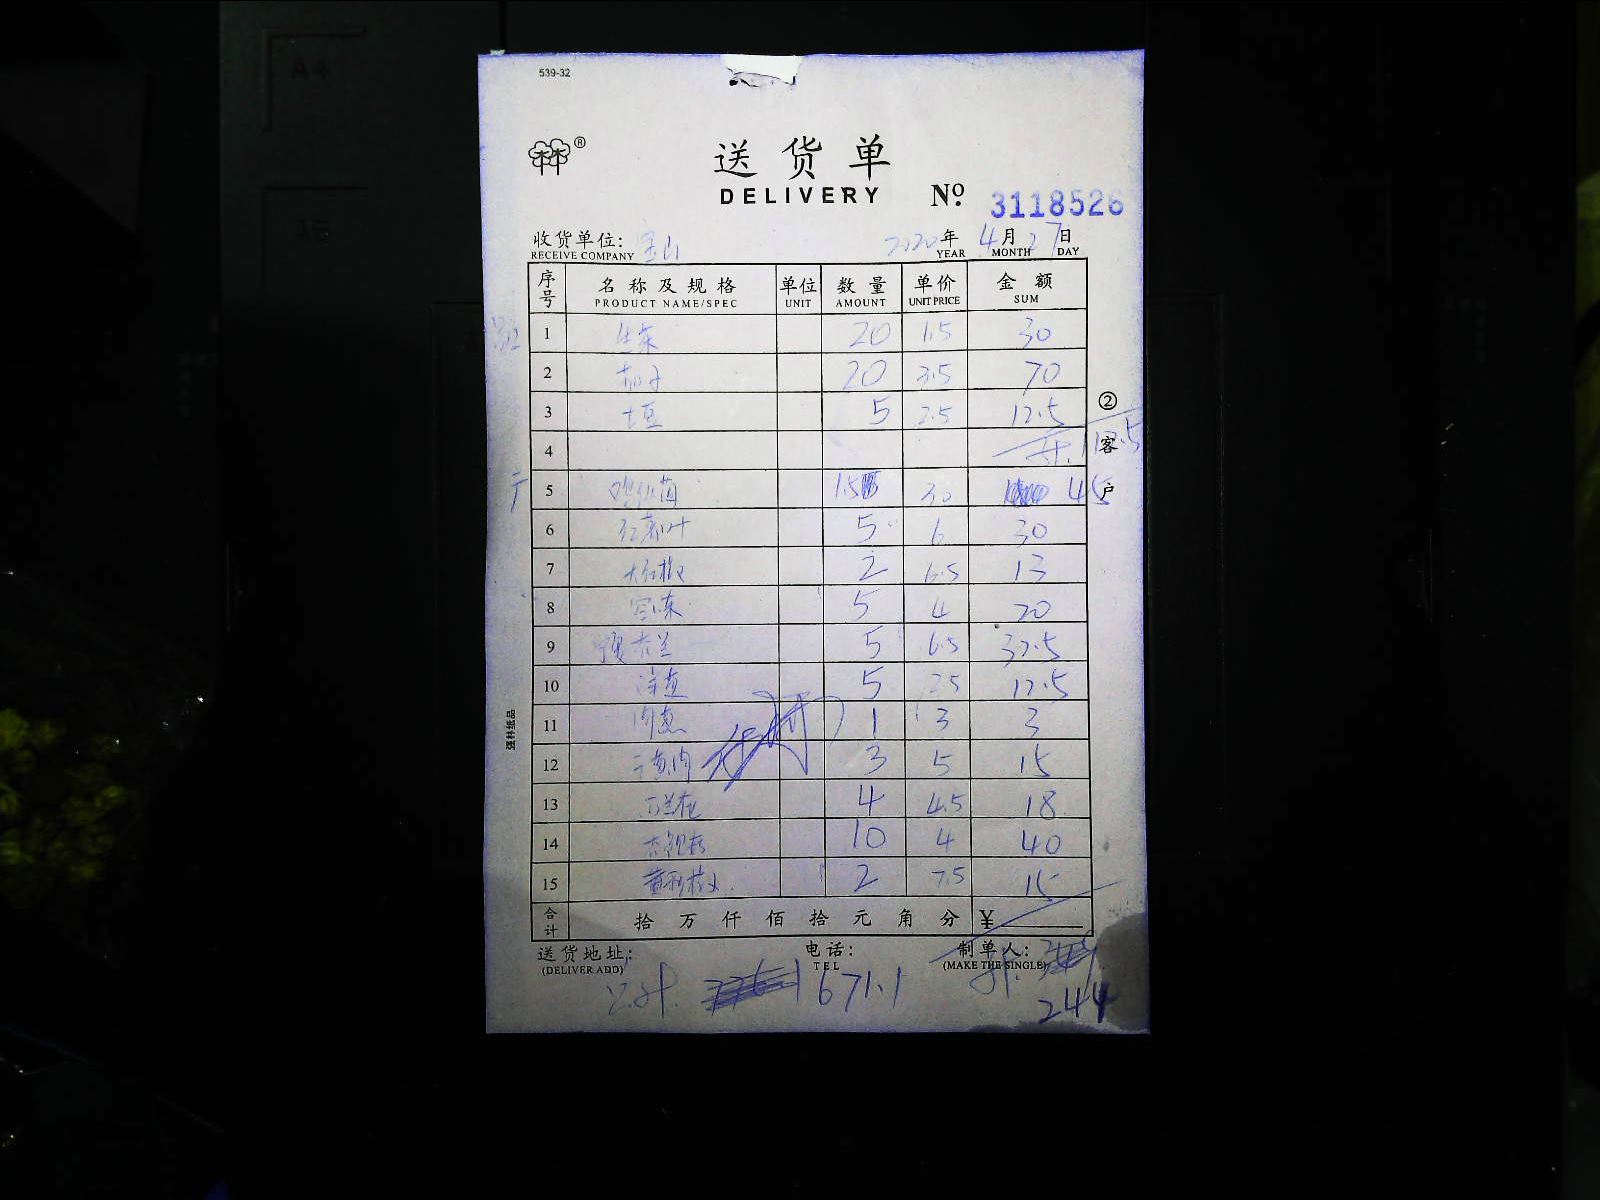 539-32
®
送货单
DELIVERY
№ 3118526
收货单位: 宝山 2020年 4月 27日
RECEIVE COMPANY YEAR MONTH DAY
序号 名称及规格 单位 数量 单价 金额
PRODUCT NAME/SPEC UNIT AMOUNT UNIT PRICE SUM
1 生菜 20 1.5 30
2 茄子 20 3.5 70
3 土豆 5 2.5 12.5
4 计.
5 1.5 30 45
6 红葱叶 5 6 30
7 大红椒 2 6.5 13
8 5 4 20
9 5 6.5 32.5
10 洋葱 5 2.5 12.5
11 1 3 3
12 3 5 15
13 西兰花 4 4.5 18
14 杏鲍菇 10 4 40
15 黄彩椒 2 7.5 15
合计 拾 万 仟 佰 拾 元 角 分 ¥
送货地址: 电话: 制单人:
(DELIVER ADD) TEL (MAKE THE SINGLE)
计.
244
共计. 671.1
② 客户
强林纸品